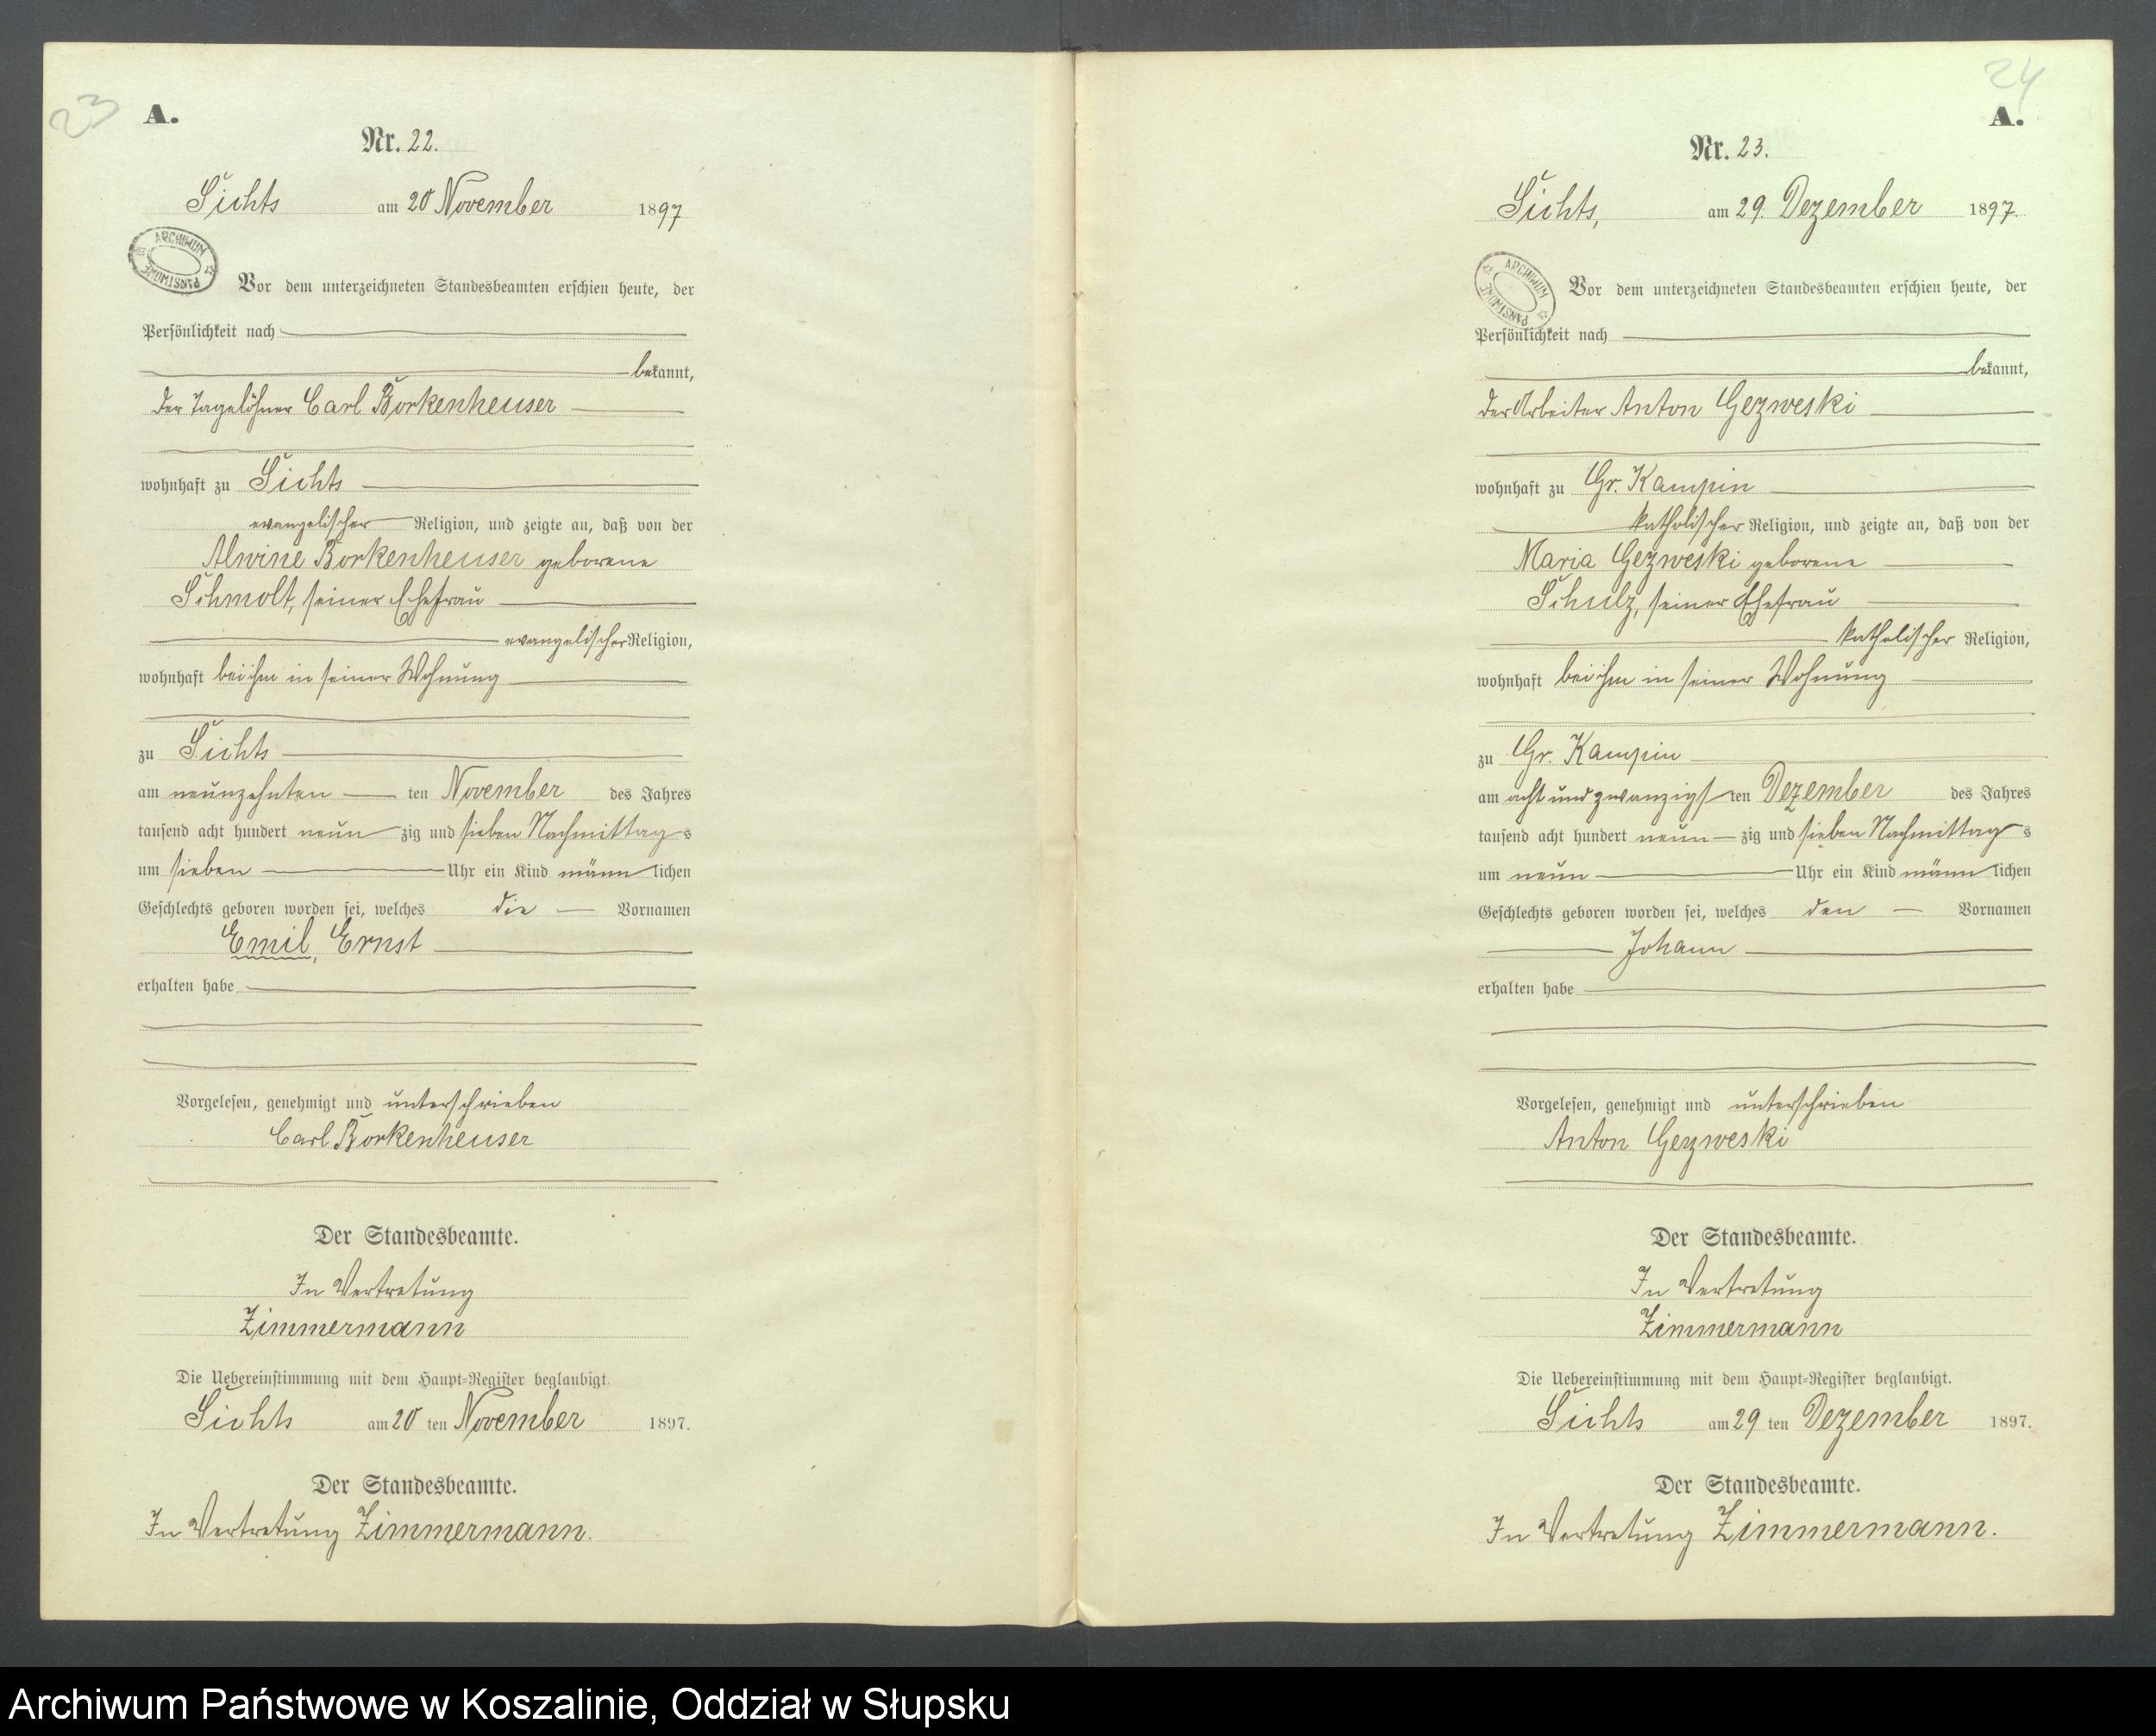 23
A.
Nr. 22.
Sichts am 20 November 1897
ARCHIWUM PAŃSTWOWE
Vor dem unterzeichneten Standesbeamten erschien heute, der
Persönlichkeit nach
bekannt,
der Tagelöhner Carl Borkenheuser
wohnhaft zu Sichts
evangelischer Religion, und zeigte an, daß von der
Alwine Borkenheuser geborene
Schmolt, seiner Ehefrau
evangelischer Religion,
wohnhaft bei ihm in seiner Wohnung
zu Sichts
am neunzehnten ten November des Jahres
tausend acht hundert neun zig und sieben Nachmittag s
um sieben Uhr ein Kind männ lichen
Geschlechts geboren worden sei, welches die Vornamen
Emil, Ernst
erhalten habe
Vorgelesen, genehmigt und unterschrieben
Carl Borkenheuser
Der Standesbeamte.
In Vertretung
Zimmermann
Die Uebereinstimmung mit dem Haupt-Register beglaubigt.
Sichts am 20 ten November 1897.
Der Standesbeamte.
In Vertretung Zimmermann.
24
A.
Nr. 23.
Sichts, am 29. Dezember 1897.
ARCHIWUM PAŃSTWOWE
Vor dem unterzeichneten Standesbeamten erschien heute, der
Persönlichkeit nach
bekannt,
der Arbeiter Anton Gezweski
wohnhaft zu Gr. Kampin
katholischer Religion, und zeigte an, daß von der
Maria Gezweski geborene
Schulz, seiner Ehefrau
katholischer Religion,
wohnhaft bei ihm in seiner Wohnung
zu Gr. Kampin
am acht und zwanzigs ten Dezember des Jahres
tausend acht hundert neun zig und sieben Nachmittag s
um neun Uhr ein Kind männ lichen
Geschlechts geboren worden sei, welches den Vornamen
Johann
erhalten habe
Vorgelesen, genehmigt und unterschrieben
Anton Gezweski
Der Standesbeamte.
In Vertretung
Zimmermann
Die Uebereinstimmung mit dem Haupt-Register beglaubigt.
Sichts am 29 ten Dezember 1897.
Der Standesbeamte.
In Vertretung Zimmermann.
Archiwum Państwowe w Koszalinie, Oddział w Słupsku